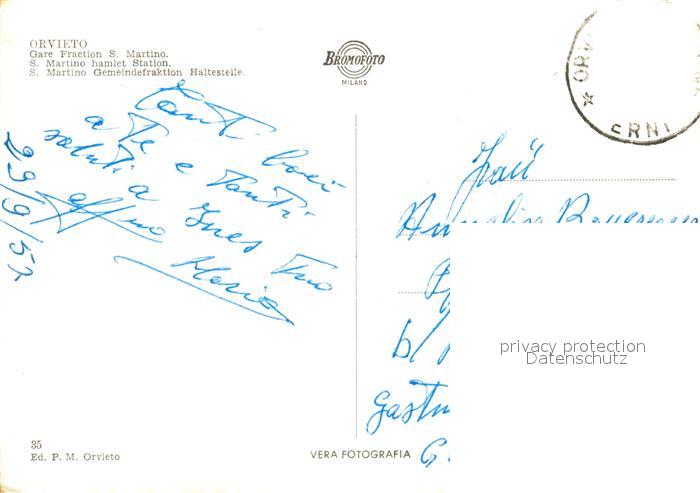 ORVIETO
Gare Fraction S. Martino.
S. Martino hamlet Station.
S. Martino Gemeindefraktion Haltestelle.
BROMOFOTO
MILANO
ORV
ERNI
Tanti baci
a Te e tanti
saluti a Ines Tuo
aff.mo Mario
29/9/57
b/
Gastm
G.
privacy protection
Datenschutz
35
Ed. P. M. Orvieto
VERA FOTOGRAFIA